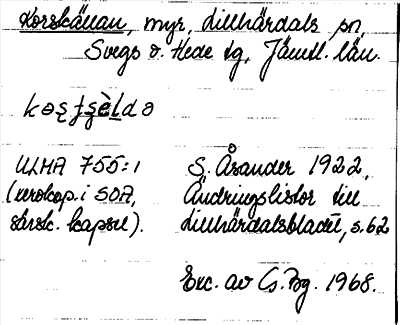 Korskällan, myr, Lillhärdals sn,
Svegs o. Hede tg, Jämtl. län.
kəʂʈʂèldə
ULMA 755:1
(xerokop. i SOA,
särsk. kapsel).
S. Åsander 1922,
Ändringslistor till
Lillhärdalsbladet, s. 62
Exc. av G. Bg. 1968.